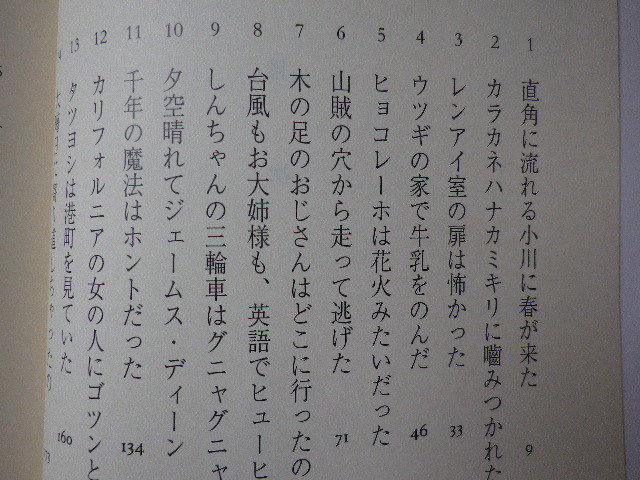 1 直角に流れる小川に春が来た 9
2 カラカネハナカミキリに嚙みつかれた
3 レンアイ室の扉は怖かった 33
4 ウツギの家で牛乳をのんだ 46
5 ヒョコレーホは花火みたいだった
6 山賊の穴から走って逃げた 71
7 木の足のおじさんはどこに行ったの
8 台風もお大姉様も、英語でヒューヒ
9 しんちゃんの三輪車はグニャグニャ
10 夕空晴れてジェームス・ディーン
11 千年の魔法はホントだった 134
12 カリフォルニアの女の人にゴツンと
13 タツヨシは港町を見ていた 160
173